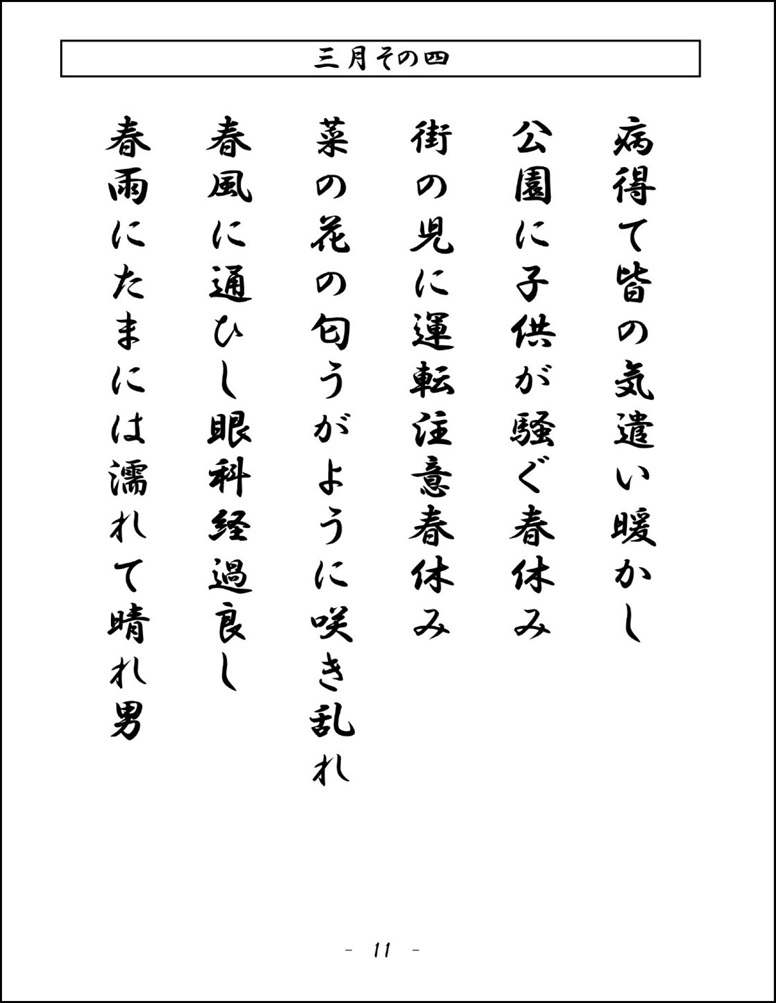 三月その四
病得て皆の気遣い暖かし
公園に子供が騒ぐ春休み
街の児に運転注意春休み
菜の花の匂うがように咲き乱れ
春風に通ひし眼科経過良し
春雨にたまには濡れて晴れ男
- 11 -